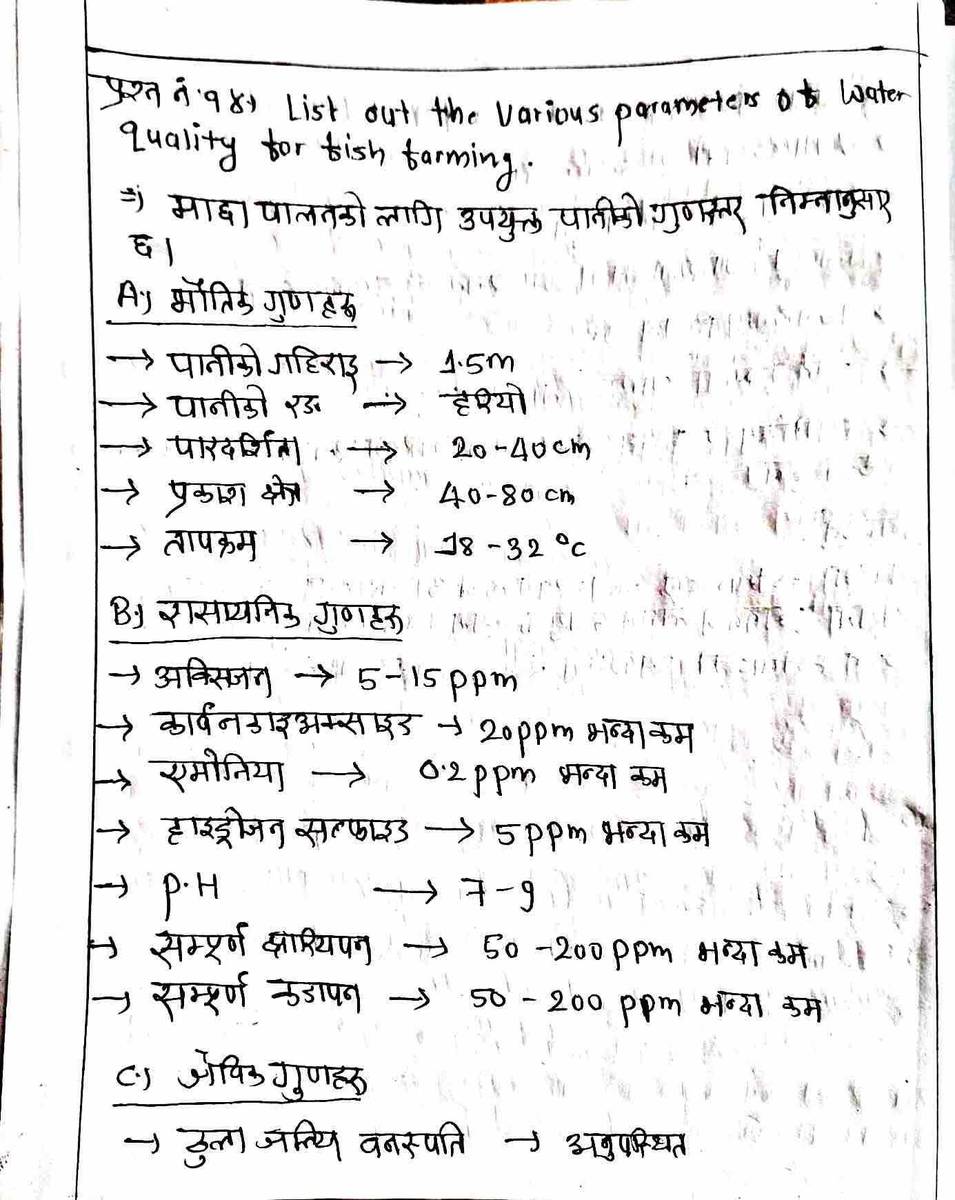 प्रश्न नं. १४) List out the Various parameters of Water
quality for fish farming.
⇒) माछा पालनको लागि उपयुक्त पानीको गुणस्तर निम्नानुसार
छ।
A.) भौतिक गुणहरू
→ पानीको गहिराइ → 1.5m
→ पानीको रङ → हरियो
→ पारदर्शिता → 20-40cm
→ प्रकाश क्षेत्र → 40-80 cm
→ तापक्रम → 18-32 °c
B.) रासायनिक गुणहरू
→ अक्सिजन → 5-15 ppm
→ कार्बनडाइअक्साइड → 20ppm भन्दा कम
→ एमोनिया → 0.2 ppm भन्दा कम
→ हाइड्रोजन सल्फाइड → 5 ppm भन्दा कम
→ p.H → 7-9
→ सम्पूर्ण क्षारियपन → 50-200 ppm भन्दा कम
→ सम्पूर्ण कडापन → 50-200 ppm भन्दा कम
C.) जैविक गुणहरू
→ ठुला जातिय वनस्पति → अनुपस्थित